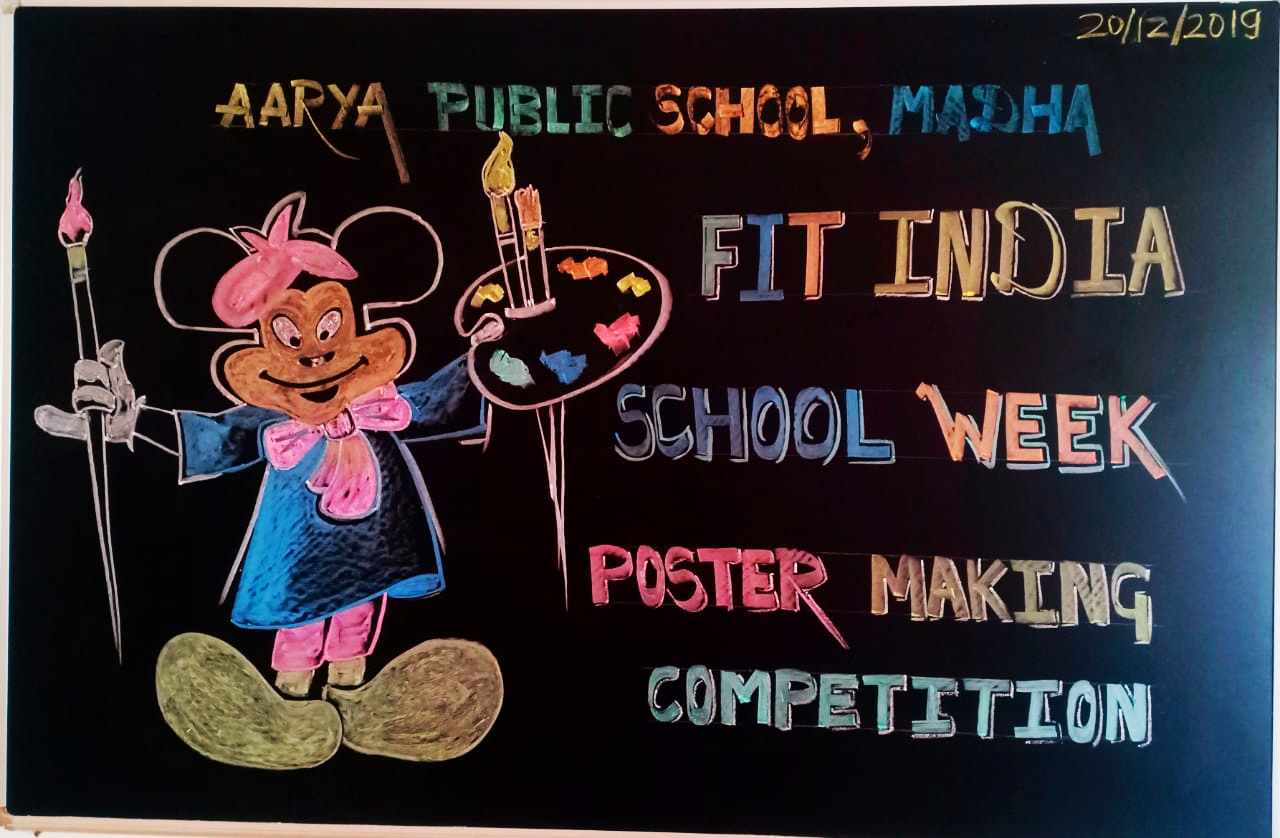 20/12/2019
AARYA PUBLIC SCHOOL, MADHA
FIT INDIA
SCHOOL WEEK
POSTER MAKING
COMPETITION